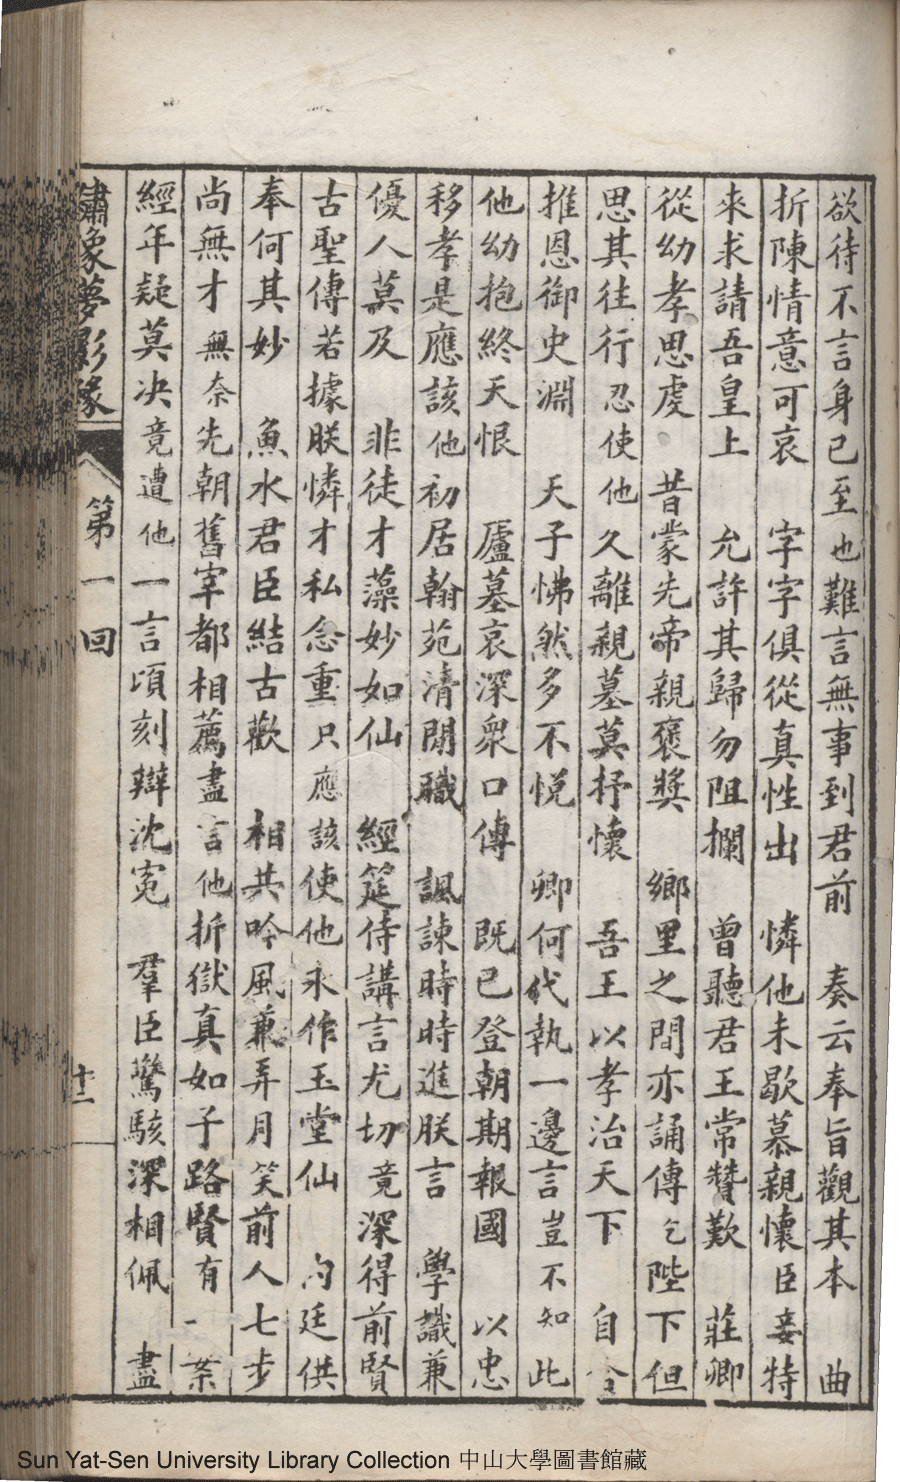 欲待不言身已至也難言無事到君前　奏云奉旨觀其本　曲
折陳情意可哀　字字俱從真性出　憐他未歇慕親懷臣妾特
來求請吾皇上　允許其歸勿阻攔　曾聽君王常贊歎　莊卿
從幼孝思虔　昔蒙先帝親褒獎　鄉里之間亦誦傳乞陛下但
思其往行忍使他久離親墓莫抒懷　吾王以孝治天下　自
推恩御史淵　天子怫然多不悅　卿何代執一邊言豈不知此
他幼抱終天恨　廬墓哀深衆口傳　既已登朝期報國　以忠
移孝是應該他初居翰苑清閒職　諷諫時時進朕言　學識兼
優人莫及　非徒才藻妙如仙　經筵侍講言尤切竟深得前賢
古聖傳若據朕憐才私念重只應該使他永作玉堂仙　內廷供
奉何其妙　魚水君臣結古歡　相共吟風兼弄月笑前人七步
尚無才無奈先朝舊宰都相薦盡言他折獄真如子路賢有一案
經年疑莫决竟遭他一言頃刻辯沈寃　羣臣驚駭深相佩　盡
繡像夢影緣　第一回　十二
Sun Yat-Sen University Library Collection 中山大學圖書館藏